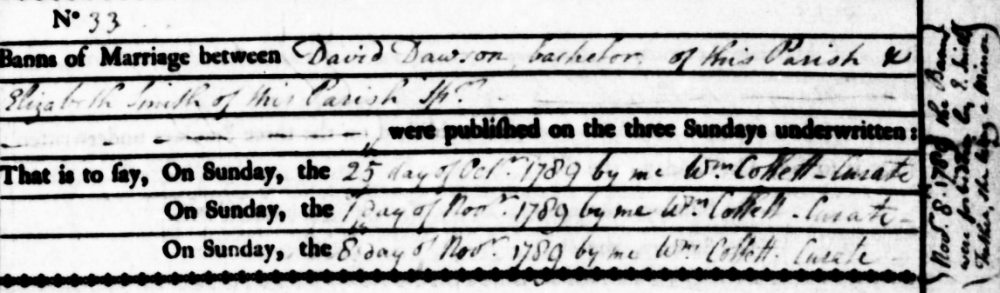 No 33
Banns of Marriage between David Dawson bachelor of this Parish &
Elizabeth Smith of this Parish Spr.
were publiſhed on the three Sundays underwritten:
That is to ſay, On Sunday, the 25th day of Octr. 1789 by me Wm Collett - Curate
On Sunday, the 1 day of Novr. 1789 by me Wm. Collett - Curate -
On Sunday, the 8th day of Novr. 1789 by me Wm. Collett. Curate
Novr. 8th 1789 the Banns
were forbidden by J. Smith
Father, she being a Minor